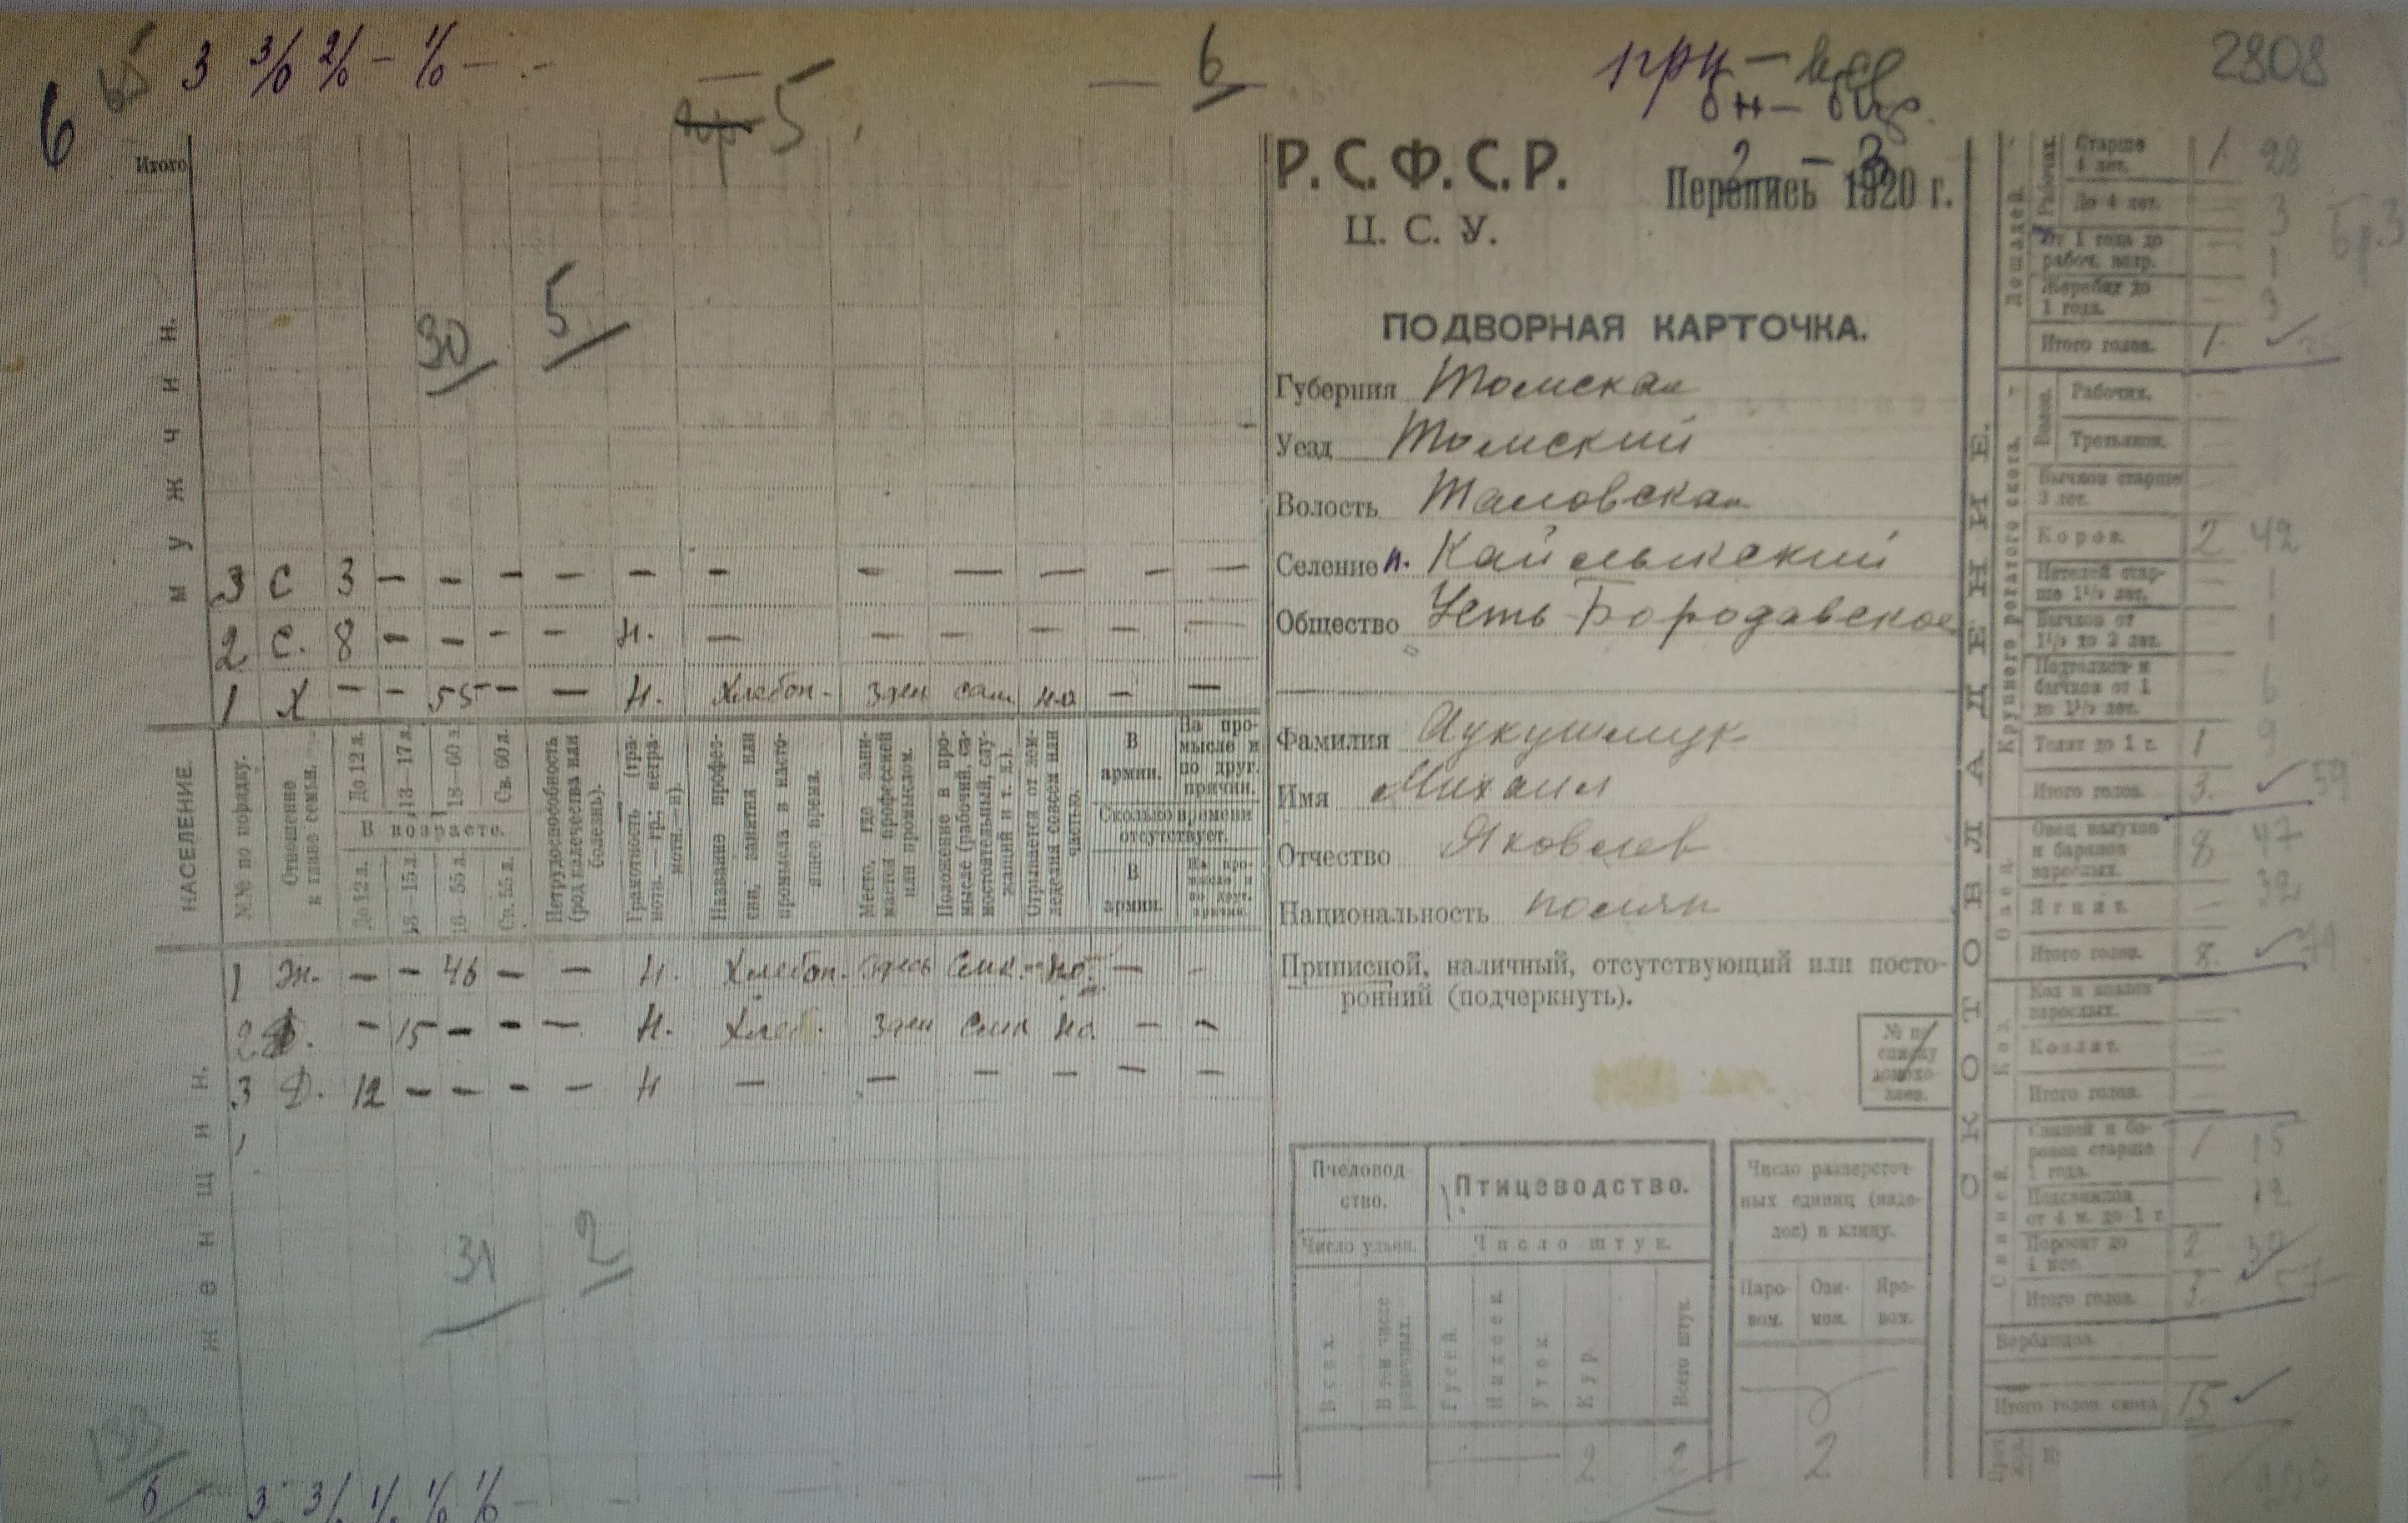 6 3 3/0 2/0 – 1/0 – . –
5
6
2808
Итого
30 5
МУЖЧИН.
3 С 3 – – – – – – – – – – –
2 С. 8 – – – – Н. – – – – – –
1 Х – – 55 – – Н. Хлебоп. здеш сам. но – –
НАСЕЛЕНИЕ.
№№ по порядку.
Отношение к главе семьи.
До 12 л. 13–17 л. 18–60 л. Св. 60 л.
В возрасте.
До 12 л. 13–15 л. 16–55 л. Св. 55 л.
Нетрудоспособность (род калечества или болезнь).
Грамотность (грамотн. — гр.; неграмотн. — н).
Название профессии, занятия или промысла в настоящее время.
Место, где занимается профессией или промыслом.
Положение в промысле (рабочий, самостоятельный, служащий и т. д.).
Отрывается от земледелия совсем или частью.
В армии.
На промысле и по друг. причин.
Сколько времени отсутствует.
В армии.
На промысле и по друг. причин.
1 Ж. – – 46 – – Н. Хлебоп. здесь – но. – –
2 Д. – 15 – – – Н. Хлеб. здеш – но. – –
3 Д. 12 – – – – Н – – – – – –
ЖЕНЩИН.
31 2
Р. С. Ф. С. Р.
Перепись 1920 г.
2 – 3
Ц. С. У.
ПОДВОРНАЯ КАРТОЧКА.
Губерния Томская
Уезд Томский
Волость Таловская
Селение п. Кайлыкский
Общество Усть-Бородавское
Фамилия
Имя Михаил
Отчество Яковлев
Национальность поляк
Приписной, наличный, отсутствующий или посто-
ронний (подчеркнуть).
№ по списку домохозяев.
Пчеловод-
ство.
Птицеводство.
Число ульев.
Число штук.
Всех.
В том числе рамочных.
Гусей.
Индеек.
Уток.
Кур.
Всего штук.
2 2
Число разверсточ-
ных единиц (наде-
лов) в клину.
Паро-
вом.
Ози-
мом.
Яро-
вом.
2
СКОТОВЛАДЕНИЕ.
Лошадей.
Рабочих.
Старше 4 лет. 1. 28
До 4 лет. – 3
От 1 года до рабоч. возр. – 1
Жеребят до 1 года. – 3
Итого голов. 1.
Крупного рогатого скота.
Волов.
Рабочих.
Третьяков.
Бычков старше 3 лет.
Коров. 2 42
Нетелей старше 1½ лет. – 1
Бычков от 1½ до 3 лет. – 1
Подтелков и бычков от 1 до 1½ лет. – 6
Телят до 1 г. 1 9
Итого голов. 3. 59
Овец.
Овец валухов и баранов взрослых. 8 47
Ягнят. – 32
Итого голов. 8.
Коз.
Коз и козлов взрослых.
Козлят.
Итого голов.
Свиней.
Свиней и боровов старше 1 года. 1 15
Подсвинков от 4 м. до 1 г. 12
Поросят до 4 мес. 2 30
Итого голов. 3.
Верблюдов.
Итого голов скота 15